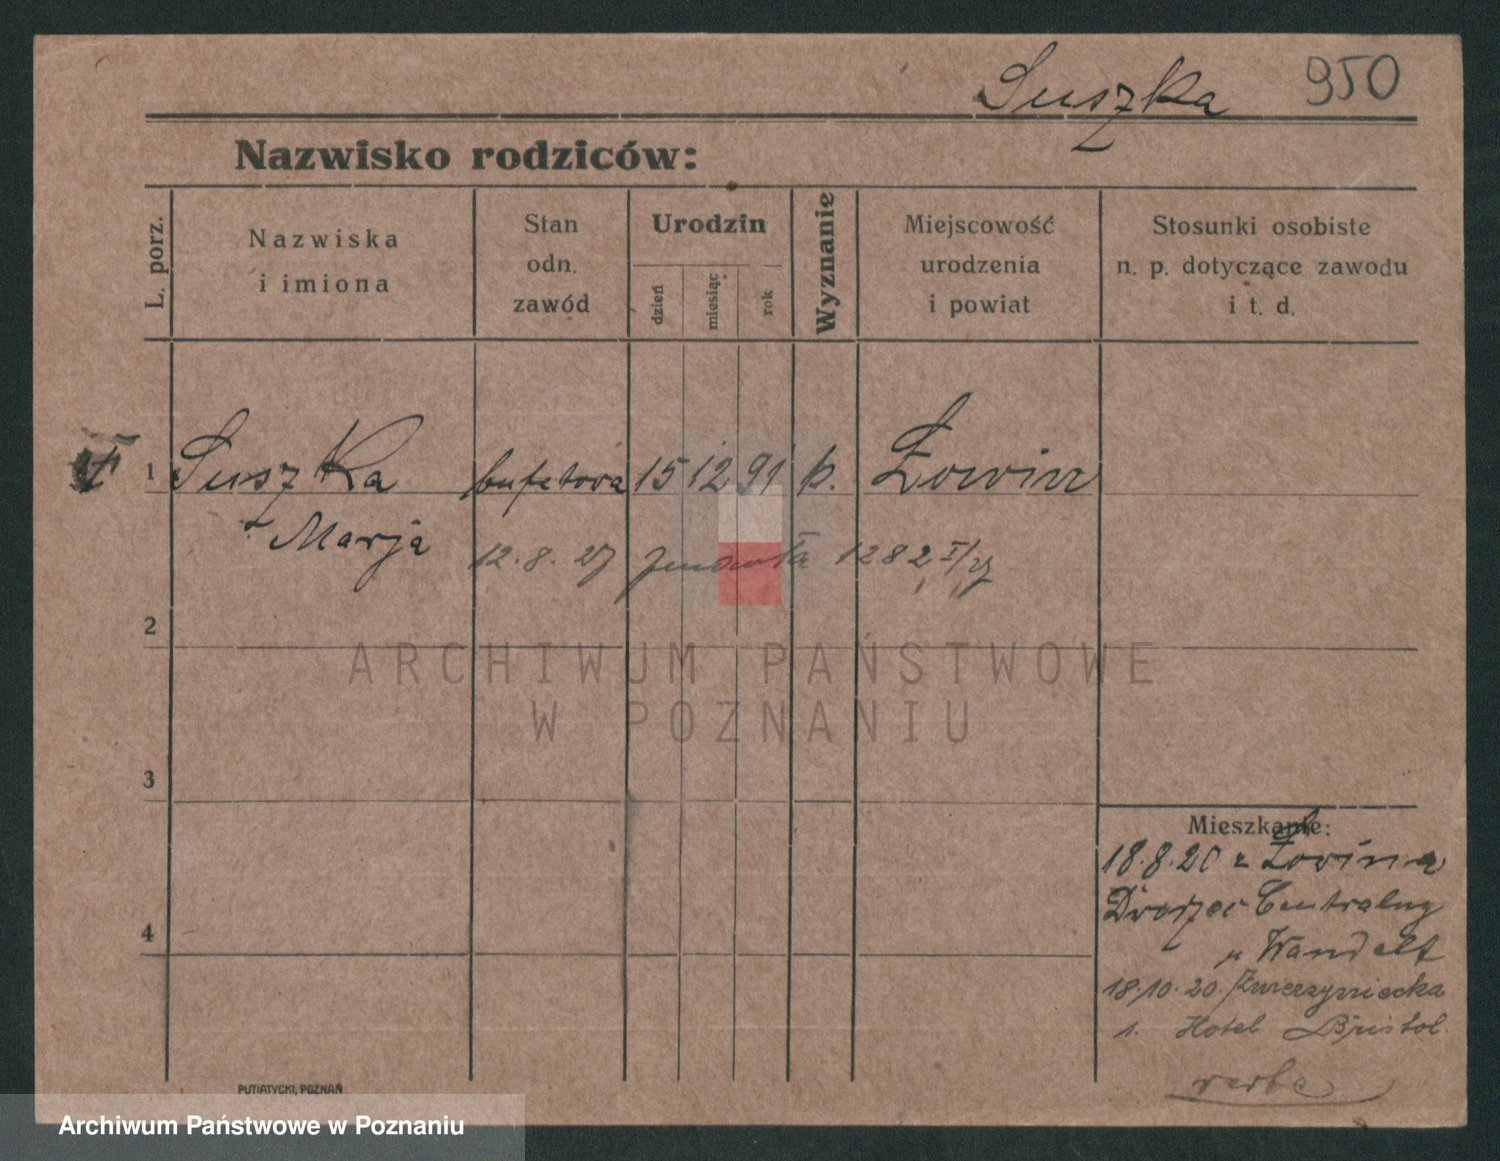 Suszka 950
Nazwisko rodziców:
L. porz.
Nazwiska
i imiona
Stan
odn.
zawód
Urodzin
dzień
miesiąc
rok
Wyznanie
Miejscowość
urodzenia
i powiat
Stosunki osobiste
n. p. dotyczące zawodu
i t. d.
1 Suszka bufetova 15 12 91 k. Łowin
Marja
12.8.27 zmarła 1282
2
ARCHIWUM PAŃSTWOWE
W POZNANIU
3
Mieszkanie:
18.8.20 z Łowina
Dworzec Centralny
u Wandelt
4
18.10.20. Zwierzyniecka
1. Hotel Bristol
PUTIATYCKI, POZNAŃ
Archiwum Państwowe w Poznaniu